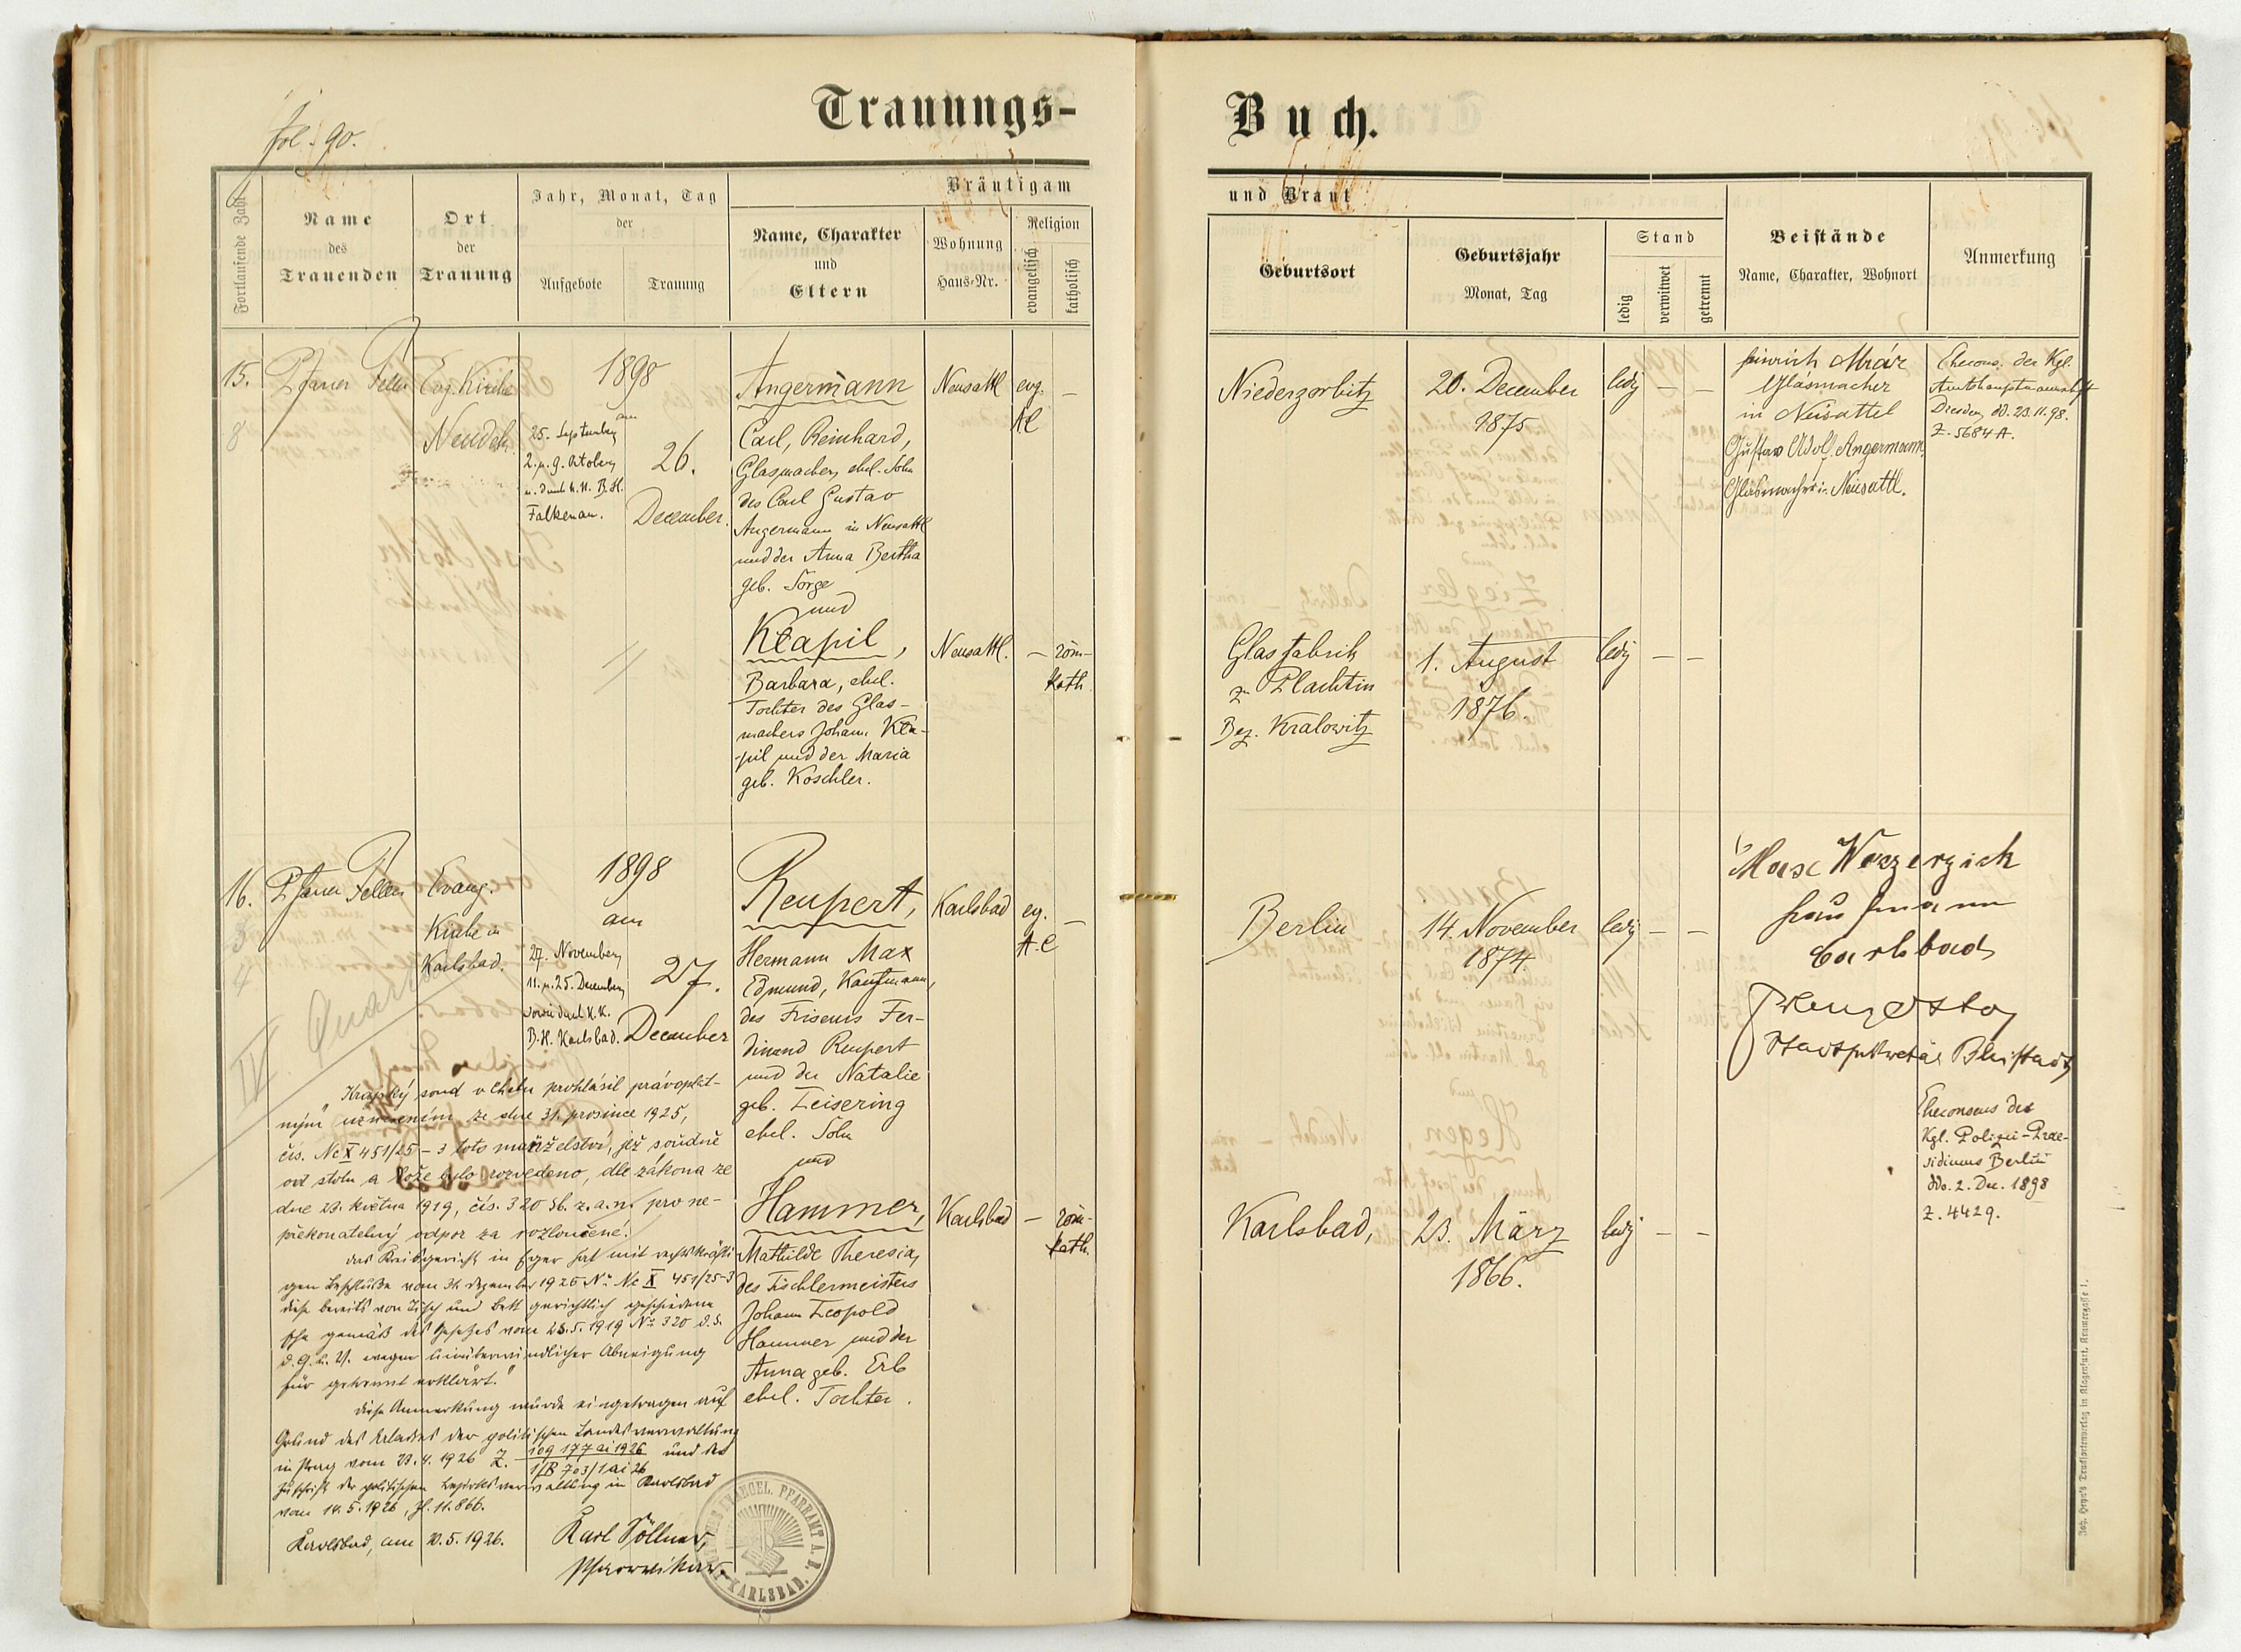 fol. 90.
Trauungs-
Buch.
Fortlaufende Zahl
Name
des
Trauenden
Ort
der
Trauung
Jahr, Monat, Tag
der
Aufgebote
Trauung
Bräutigam
Name, Charakter
und
Eltern
Wohnung
Haus-Nr.
Religion
evangelisch
katholisch
und Braut
Geburtsort
Geburtsjahr
Monat, Tag
Stand
ledig
verwitwet
getrennt
Beistände
Name, Charakter, Wohnort
Anmerkung
15.
8
Pfarrer Feller
Evg. Kirche
Neudek.
1898
am
25. September
2. u. 9. Oktober
u. durch k. k. B. H.
Falkenau.
26.
December.
Angermann
Carl, Reinhard,
Glasmacher, ehel. Sohn
des Carl Gustav
Angermann in Neusattl
und der Anna Bertha
geb. Sorge
und
Neusattl
evg.
AC
—
Niedergorbitz
20. December
1875
ledig
—
—
Heinrich Mráz
Glasmacher
in Neusattel
Gustav Adolf Angermann,
Glasmacher in Neusattl.
Ehecons. der Kgl.
Amtshauptmannschaft
Dresden, dd. 23.11.98.
Z. 5684 A.
Klapil,
Barbara, ehel.
Tochter des Glas-
machers Johann Kla-
pil und der Maria
geb. Koschler.
Neusattl.
—
röm-
kath.
Glasfabrik
zu Plachtin
Bez. Kralowitz
1. August
1876.
ledig
—
—
16.
3
4
Pfarrer Feller
Evang.
Kirche in
Karlsbad.
1898
am
27. November,
11. u. 25. December,
sowie durch k. k.
B. H. Karlsbad.
27.
December
Reupert,
Hermann Max
Edmund, Kaufmann,
des Friseurs Fer-
dinand Reupert
und der Natalie
geb. Leisering
ehel. Sohn
und
Karlsbad
eg.
A.C
—
Berlin
14. November
1874.
ledig
—
—
Carlsbad
Eheconsens des
Kgl. Polizei-Prae-
sidiums Berlin
ddo. 2. Dec. 1898
Z. 4429.
Hammer,
Mathilde Theresia,
des Tischlermeisters
Johann Leopold
Hammer und der
Anna geb. Erb
ehel. Tochter.
Karlsbad
—
röm-
kath.
Karlsbad,
23. März
1866.
ledig
—
—
IV. Quartal
„Krajský soud v Chebu prohlásil právoplat-
ným usnesením ze dne 31. prosince 1925,
čís. Nc X 451/25-3 toto manželství, jež soudně
od stolu a lože bylo rozvedeno, dle zákona ze
dne 22. května 1919, čís. 320 Sb. z. a n. pro ne-
překonatelný odpor za rozloučené.
Das Kreisgericht in Eger hat mit rechtskräfti-
gem Beschlusse vom 31. Dezember 1925 No. Nc X 451/25-3
diese bereits von Tisch und Bett gerichtlich geschiedene
Ehe gemäß des Gesetzes vom 22.5.1919 No. 320 d. S.
d. G. u. V. wegen unüberwindlicher Abneigung
für getrennt erklärt."
Diese Anmerkung wurde eingetragen auf
Grund des Erlasses der politischen Landesverwaltung
in Prag vom 23.4.1926 Z. 109 177 ai 1926 und der
1/B 703/1 ai 26
Zuschrift der politischen Bezirksverwaltung in Karlsbad
vom 14.5.1926, Zl. 11.866.
Karlsbad, am 20.5.1926.
Karl Söllner,
Pfarrvikar.
EVANGEL. PFARRAMT A. B.
KARLSBAD.
Joh. Heyn's Drucksortenverlag in Klagenfurt, Kramergasse 1.